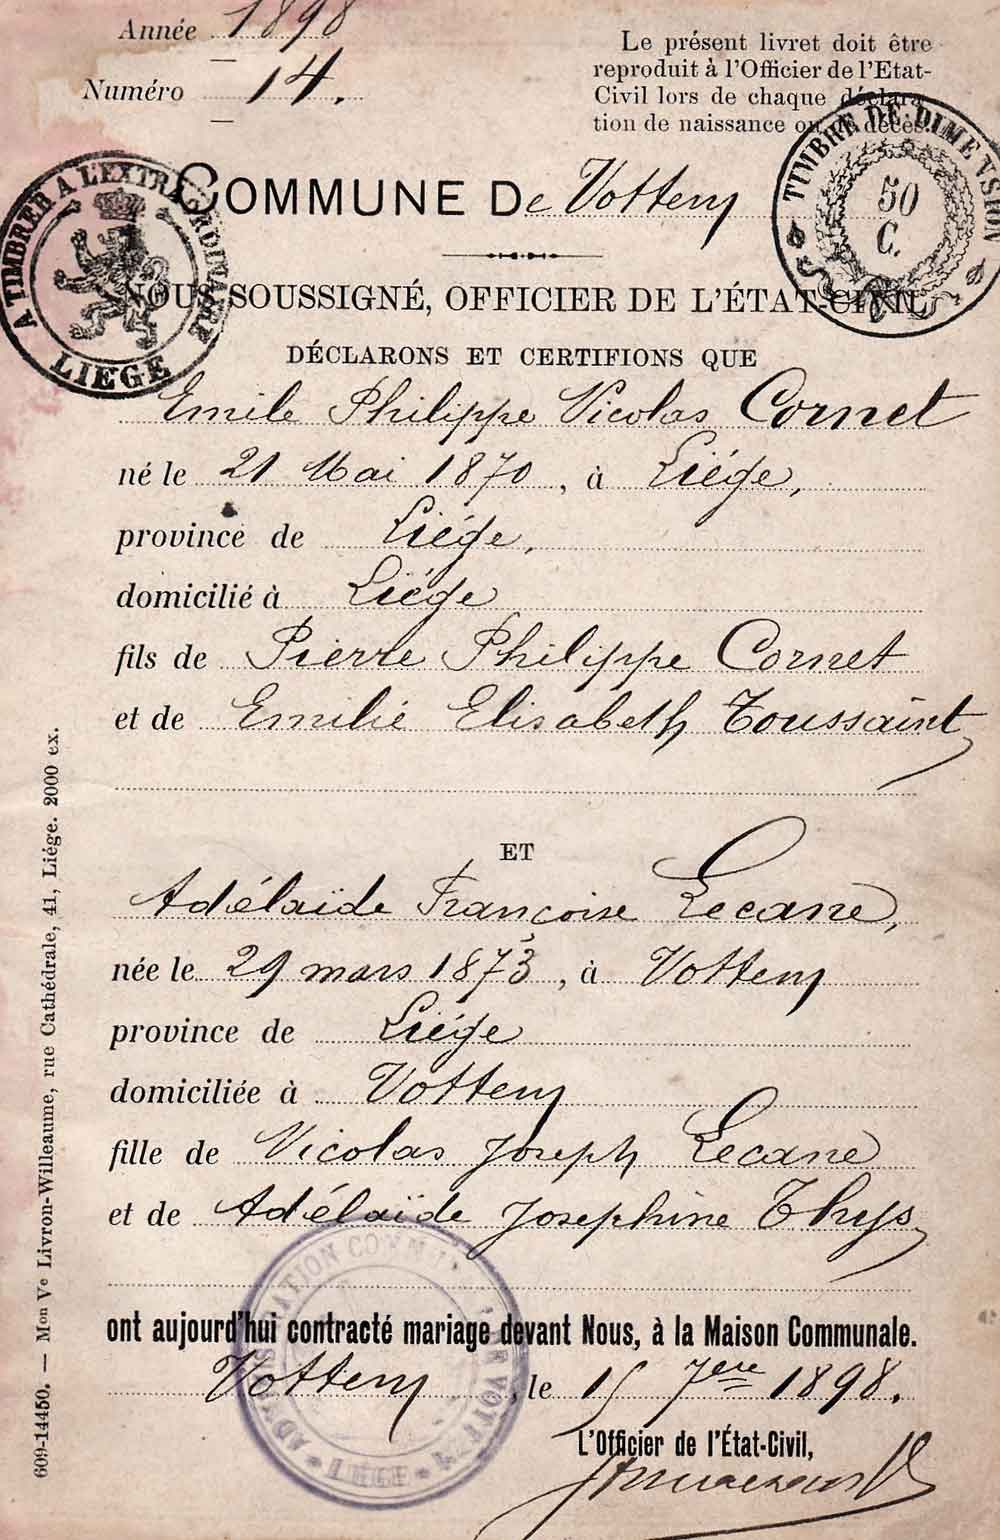 Année 1898
Numéro 14.
Le présent livret doit être
reproduit à l'Officier de l'Etat-
Civil lors de chaque déclara-
tion de naissance ou de décès.
A TIMBRER A L'EXTRAORDINAIRE
LIEGE
TIMBRE DE DIMENSION
50
C.
COMMUNE De Vottem
NOUS SOUSSIGNÉ, OFFICIER DE L'ÉTAT-CIVIL
DÉCLARONS ET CERTIFIONS QUE
Emile Philippe Nicolas Cornet
né le 21 Mai 1870, à Liége,
province de Liége,
domicilié à Liége
fils de Pierre Philippe Cornet
et de Emilie Elisabeth Toussaint
ET
Adélaïde Françoise Lecane,
née le 29 mars 1873, à Vottem
province de Liége
domiciliée à Vottem
fille de Nicolas Joseph Lecane
et de Adélaïde Josephine Thys
ont aujourd'hui contracté mariage devant Nous, à la Maison Communale.
Vottem, le 15 7bre 1898.
L'Officier de l'État-Civil,
ADMINISTRATION COMMUNALE DE VOTTEM
LIEGE
609-14450. — Mon Ve Livron-Willeaume, rue Cathédrale, 41, Liége. 2000 ex.